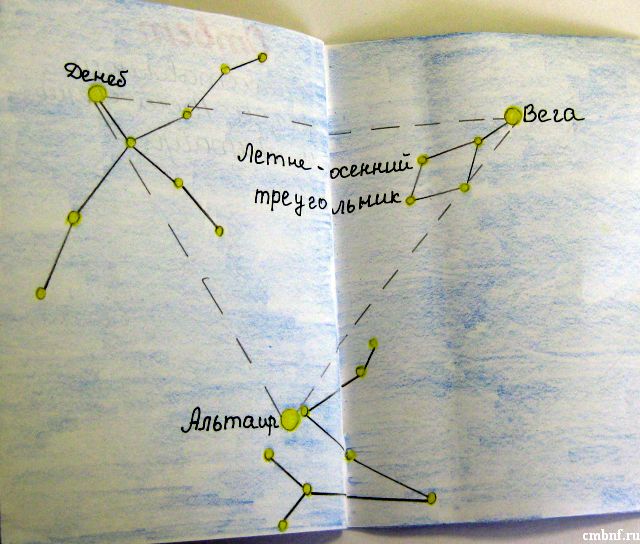 Денеб
Вега
Летне-осенний
треугольник
Альтаир
cmbnf.ru